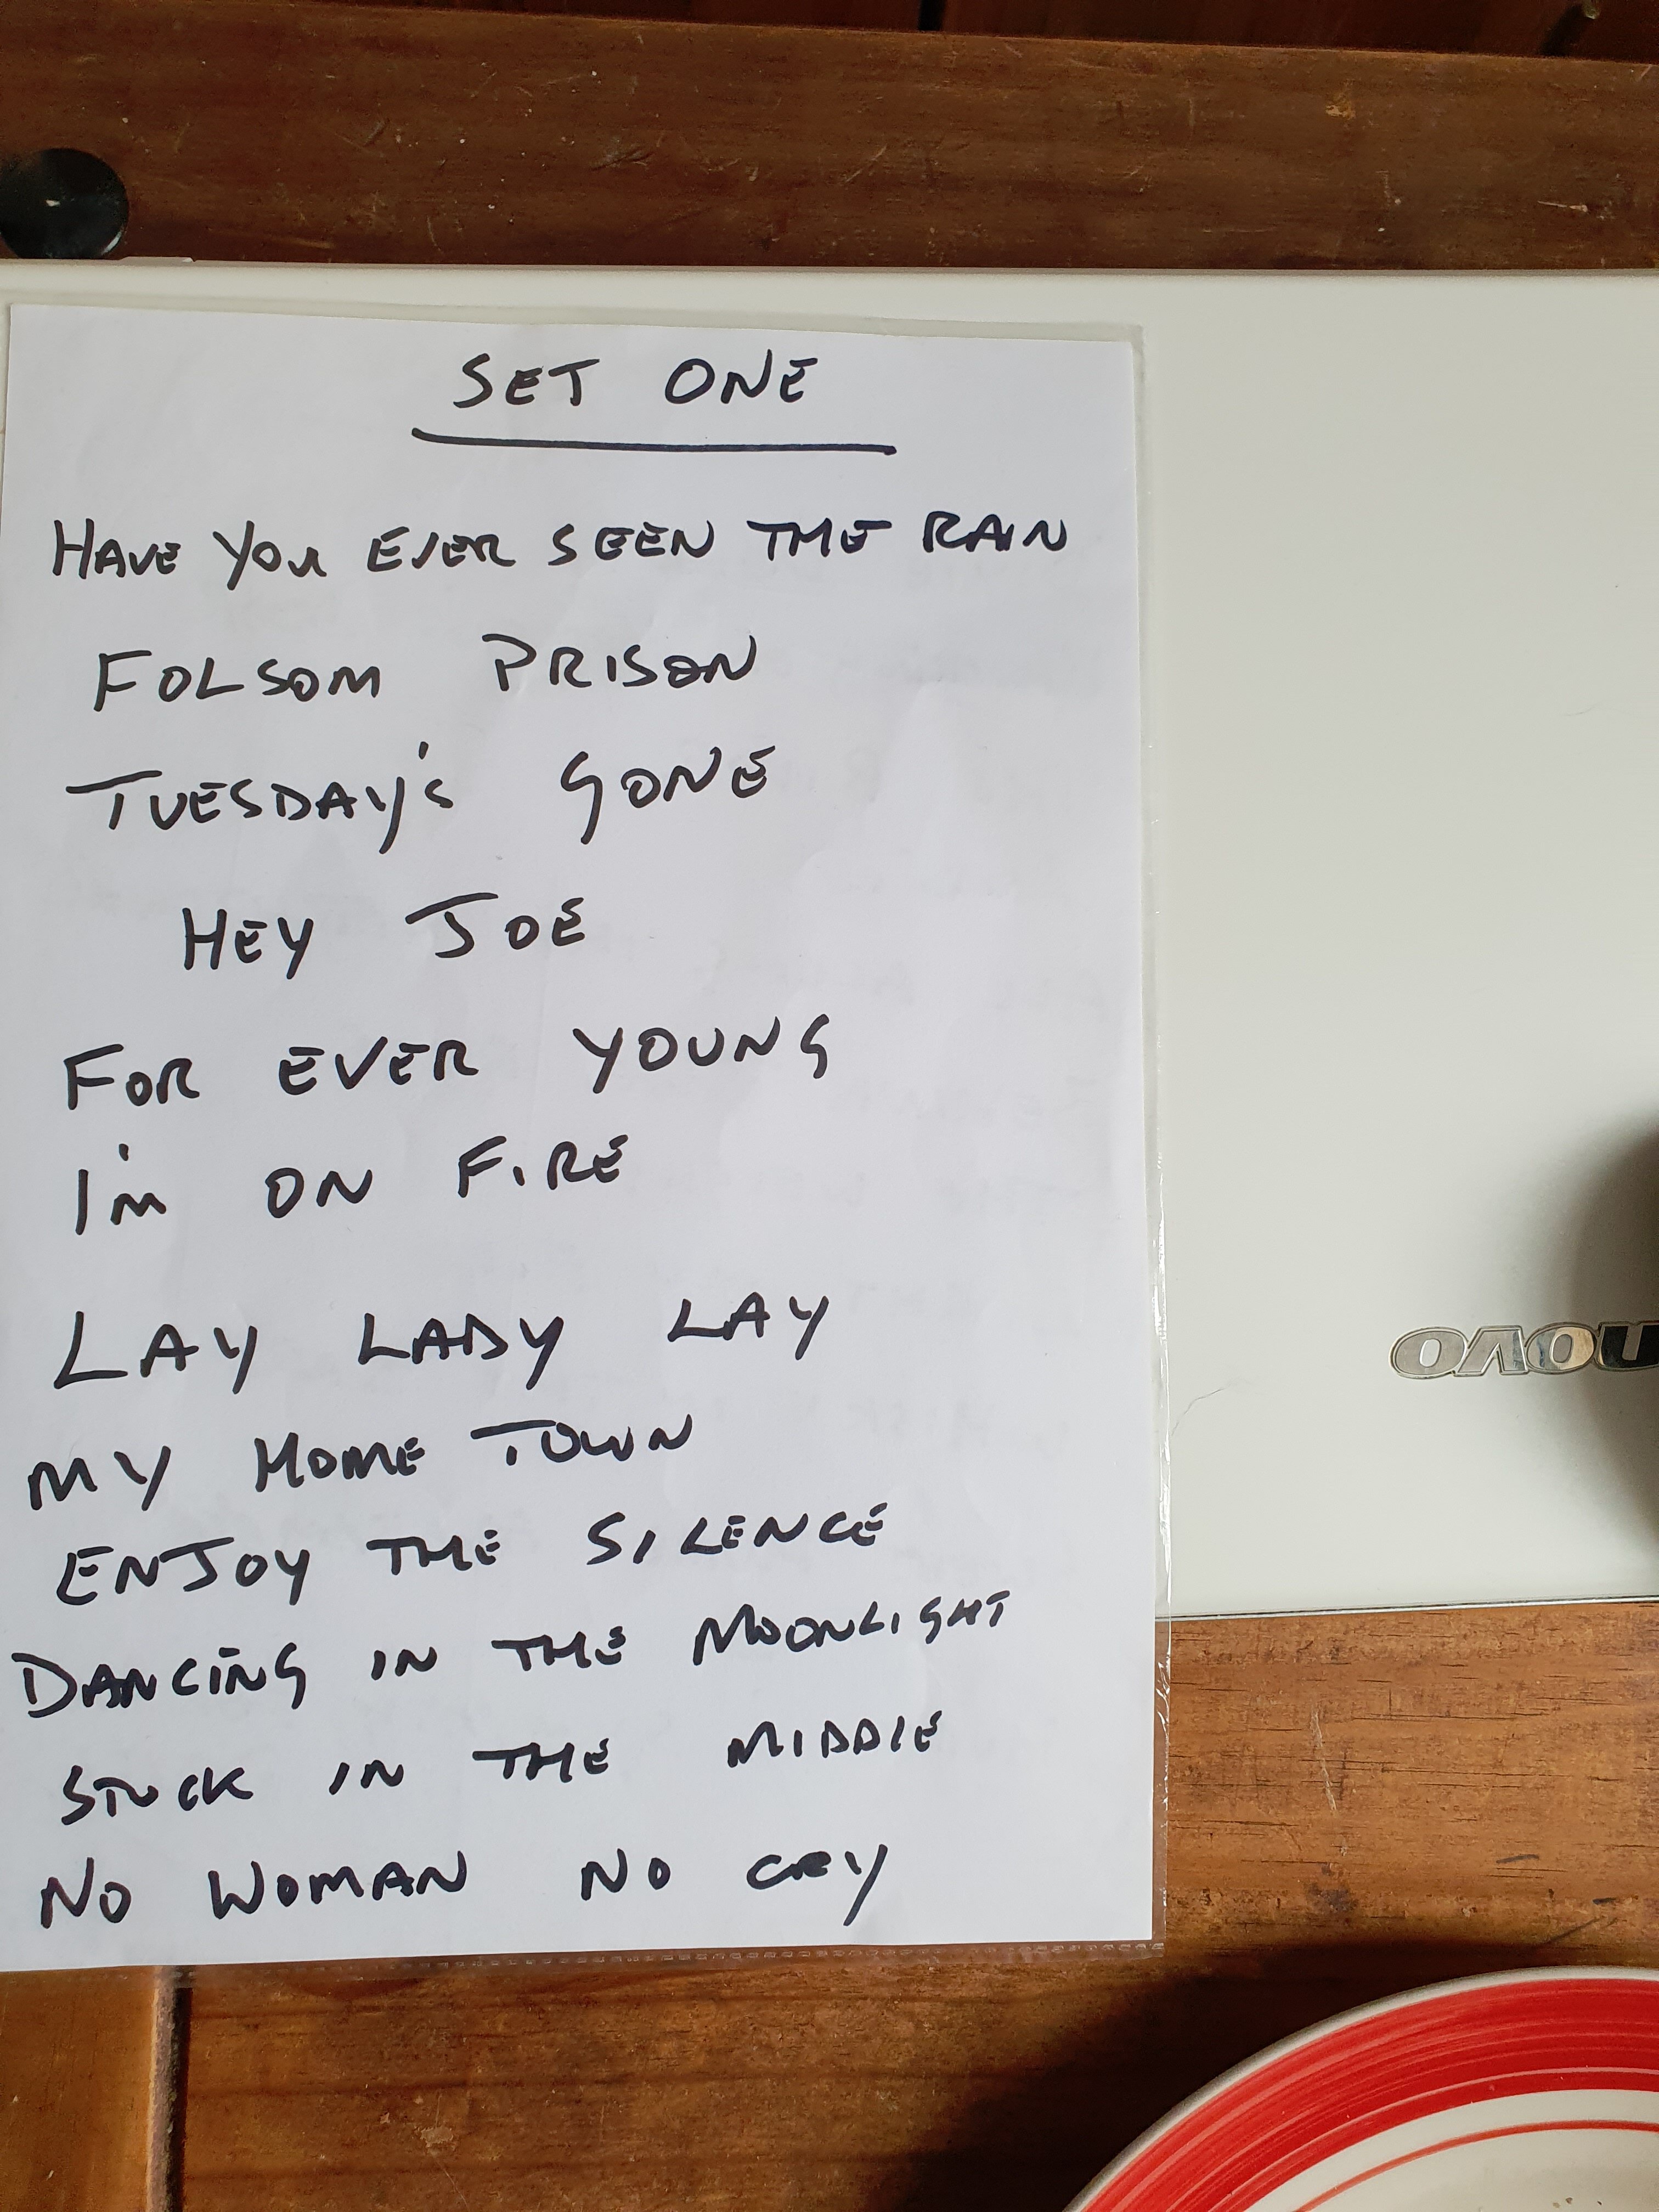 SET ONE
HAVE YOU EVER SEEN THE RAIN
FOLSOM PRISON
TUESDAY'S GONE
HEY JOE
FOR EVER YOUNG
I'M ON FIRE
LAY LADY LAY
MY HOME TOWN
ENJOY THE SILENCE
DANCING IN THE MOONLIGHT
STUCK IN THE MIDDLE
NO WOMAN NO CRY
novo